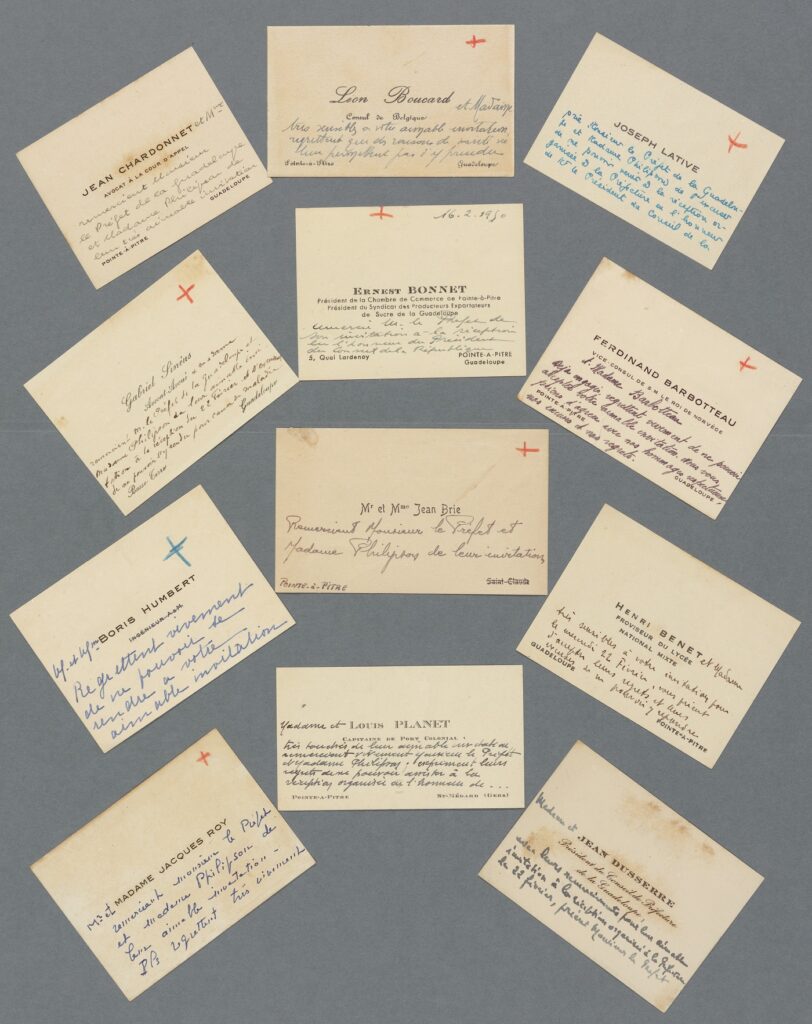 JEAN CHARDONNET et Mme
AVOCAT À LA COUR D'APPEL
remercient Monsieur
le Préfet de la Guadeloupe
et Madame Philipson de
leur très aimable invitation
POINTE-À-PITRE
GUADELOUPE
Léon Boucard et Madame
Consul de Belgique
très sensibles à votre aimable invitation,
regrettent que des raisons de santé ne
leur permettent pas d'y prendre
Pointe-à-Pitre
Guadeloupe
JOSEPH LATIVE
prie Monsieur le Préfet de la Guadelou
pe et Madame Philipson de
de ne pouvoir venir à la réception or
ganisée à la Préfecture en l'honneur
de Mr le Président du Conseil de la
16.2.1950
ERNEST BONNET
Président de la Chambre de Commerce de Pointe-à-Pitre
Président du Syndicat des Producteurs Exportateurs
de Sucre de la Guadeloupe
remercie M. le Préfet de
son invitation à la réception
en l'honneur du Président
du Conseil de la République
5, Quai Lardenoy
POINTE-A-PITRE
Guadeloupe
Gabriel Sinéus
Avocat-Avoué et Madame
remercient M. le Préfet de la Guadeloupe et
Madame Philipson de leur aimable invi
tation à la réception du 22 février et s'excusent
de ne pouvoir s'y rendre pour cause de maladie
Basse-Terre
Guadeloupe
FERDINAND BARBOTTEAU
VICE CONSUL DE S.M. LE ROI DE NORVÈGE
et Madame Barbotteau
déjà engagés, regrettent vivement de ne pouvoir
accepter votre aimable invitation. Nous vous
prions d'agréer avec nos hommages respectueux,
nos excuses et nos regrets.
POINTE-A-PITRE
GUADELOUPE
Mr et Mme Jean Brie
Remercient Monsieur le Préfet et
Madame Philipson de leur invitation
POINTE-à-PITRE
Saint-Claude
M. et Mme BORIS HUMBERT
INGÉNIEUR A&M
Regrettent vivement
de ne pouvoir se
rendre à votre
aimable invitation
HENRI BENET et Madame
PROVISEUR DU LYCÉE
NATIONAL MIXTE
très sensibles à votre invitation pour
le mercredi 22 Février, vous prient
d'accepter leurs regrets et leurs
excuses de ne pouvoir y répondre
GUADELOUPE
POINTE-A-PITRE
Madame et LOUIS PLANET
CAPITAINE DE PORT COLONIAL
très touchés de leur aimable
remercient vivement Monsieur le Préfet
et Madame Philipson, expriment leurs
regrets de ne pouvoir assister à la
réception organisée en l'honneur de...
POINTE-A-PITRE
ST-MÉDARD (GERS)
Mr et MADAME JACQUES ROY
remercient monsieur le Préfet
et madame Philipson de
leur aimable invitation -
Ils regrettent très vivement
Madame et JEAN DUSSERRE
Président du Conseil de Préfecture
de la Guadeloupe,
avec leurs remerciements pour leur aimable
invitation à la réception organisée à la Préfecture
le 22 février, prient Monsieur le Préfet